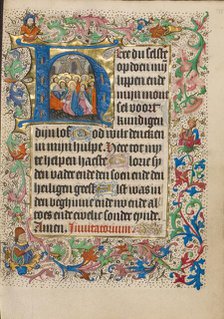 Here du selste
op doen mijn
lippen ende
mijn mont
sel voort
kundigen
dijn lof God wilt dencken
in mijnre hulpe Here tot mi
te helpen haeste Glorie si den
vader ende den soen ende den
heiligen geest Alst was in
den beghinne ende nu ende al
toes ende ewelic sonder eynde
Amen. Invitatorium.